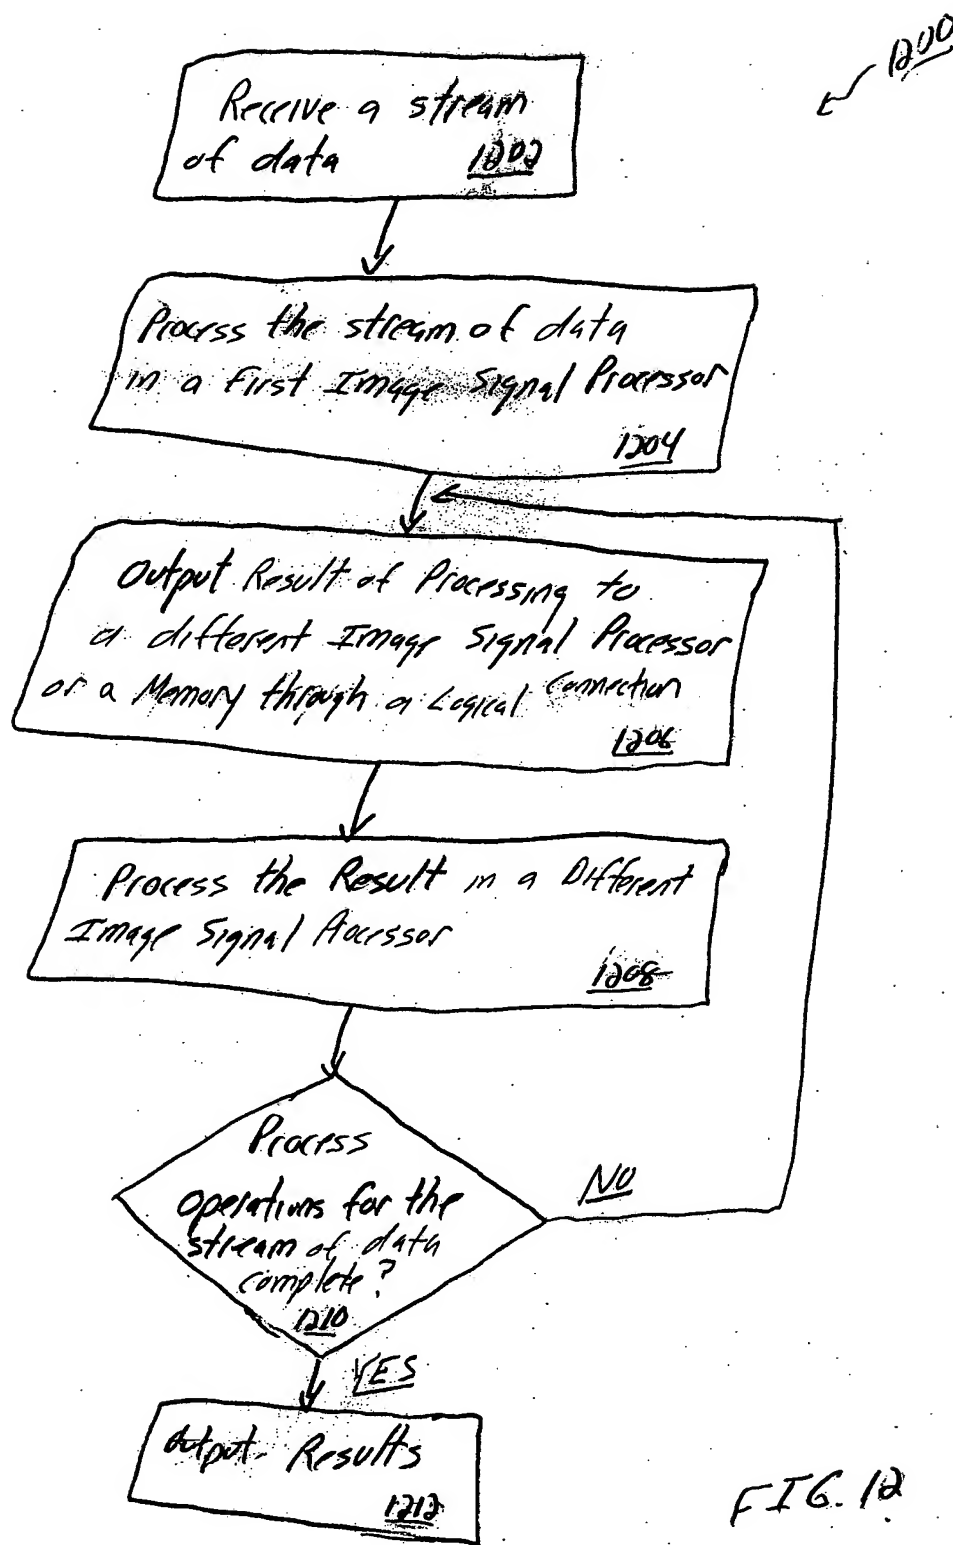 1200
Receive a stream
of data 1202
Process the stream of data
in a First Image Signal Processor
1204
Output Result of Processing to
a different Image Signal Processor
or a Memory through a Logical Connection
1206
Process the Result in a Different
Image Signal Processor
1208
Process
operations for the
stream of data
complete?
1210
NO
YES
Output Results
1212
FIG. 12